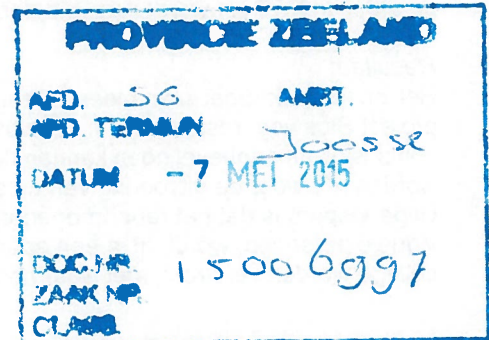 PROVINCIE ZEELAND
AFD. SG AMBT.
AFD. TERMIJN Joosse
DATUM - 7 MEI 2015
DOC.NR. 15006997
ZAAK NR.
CLASS.